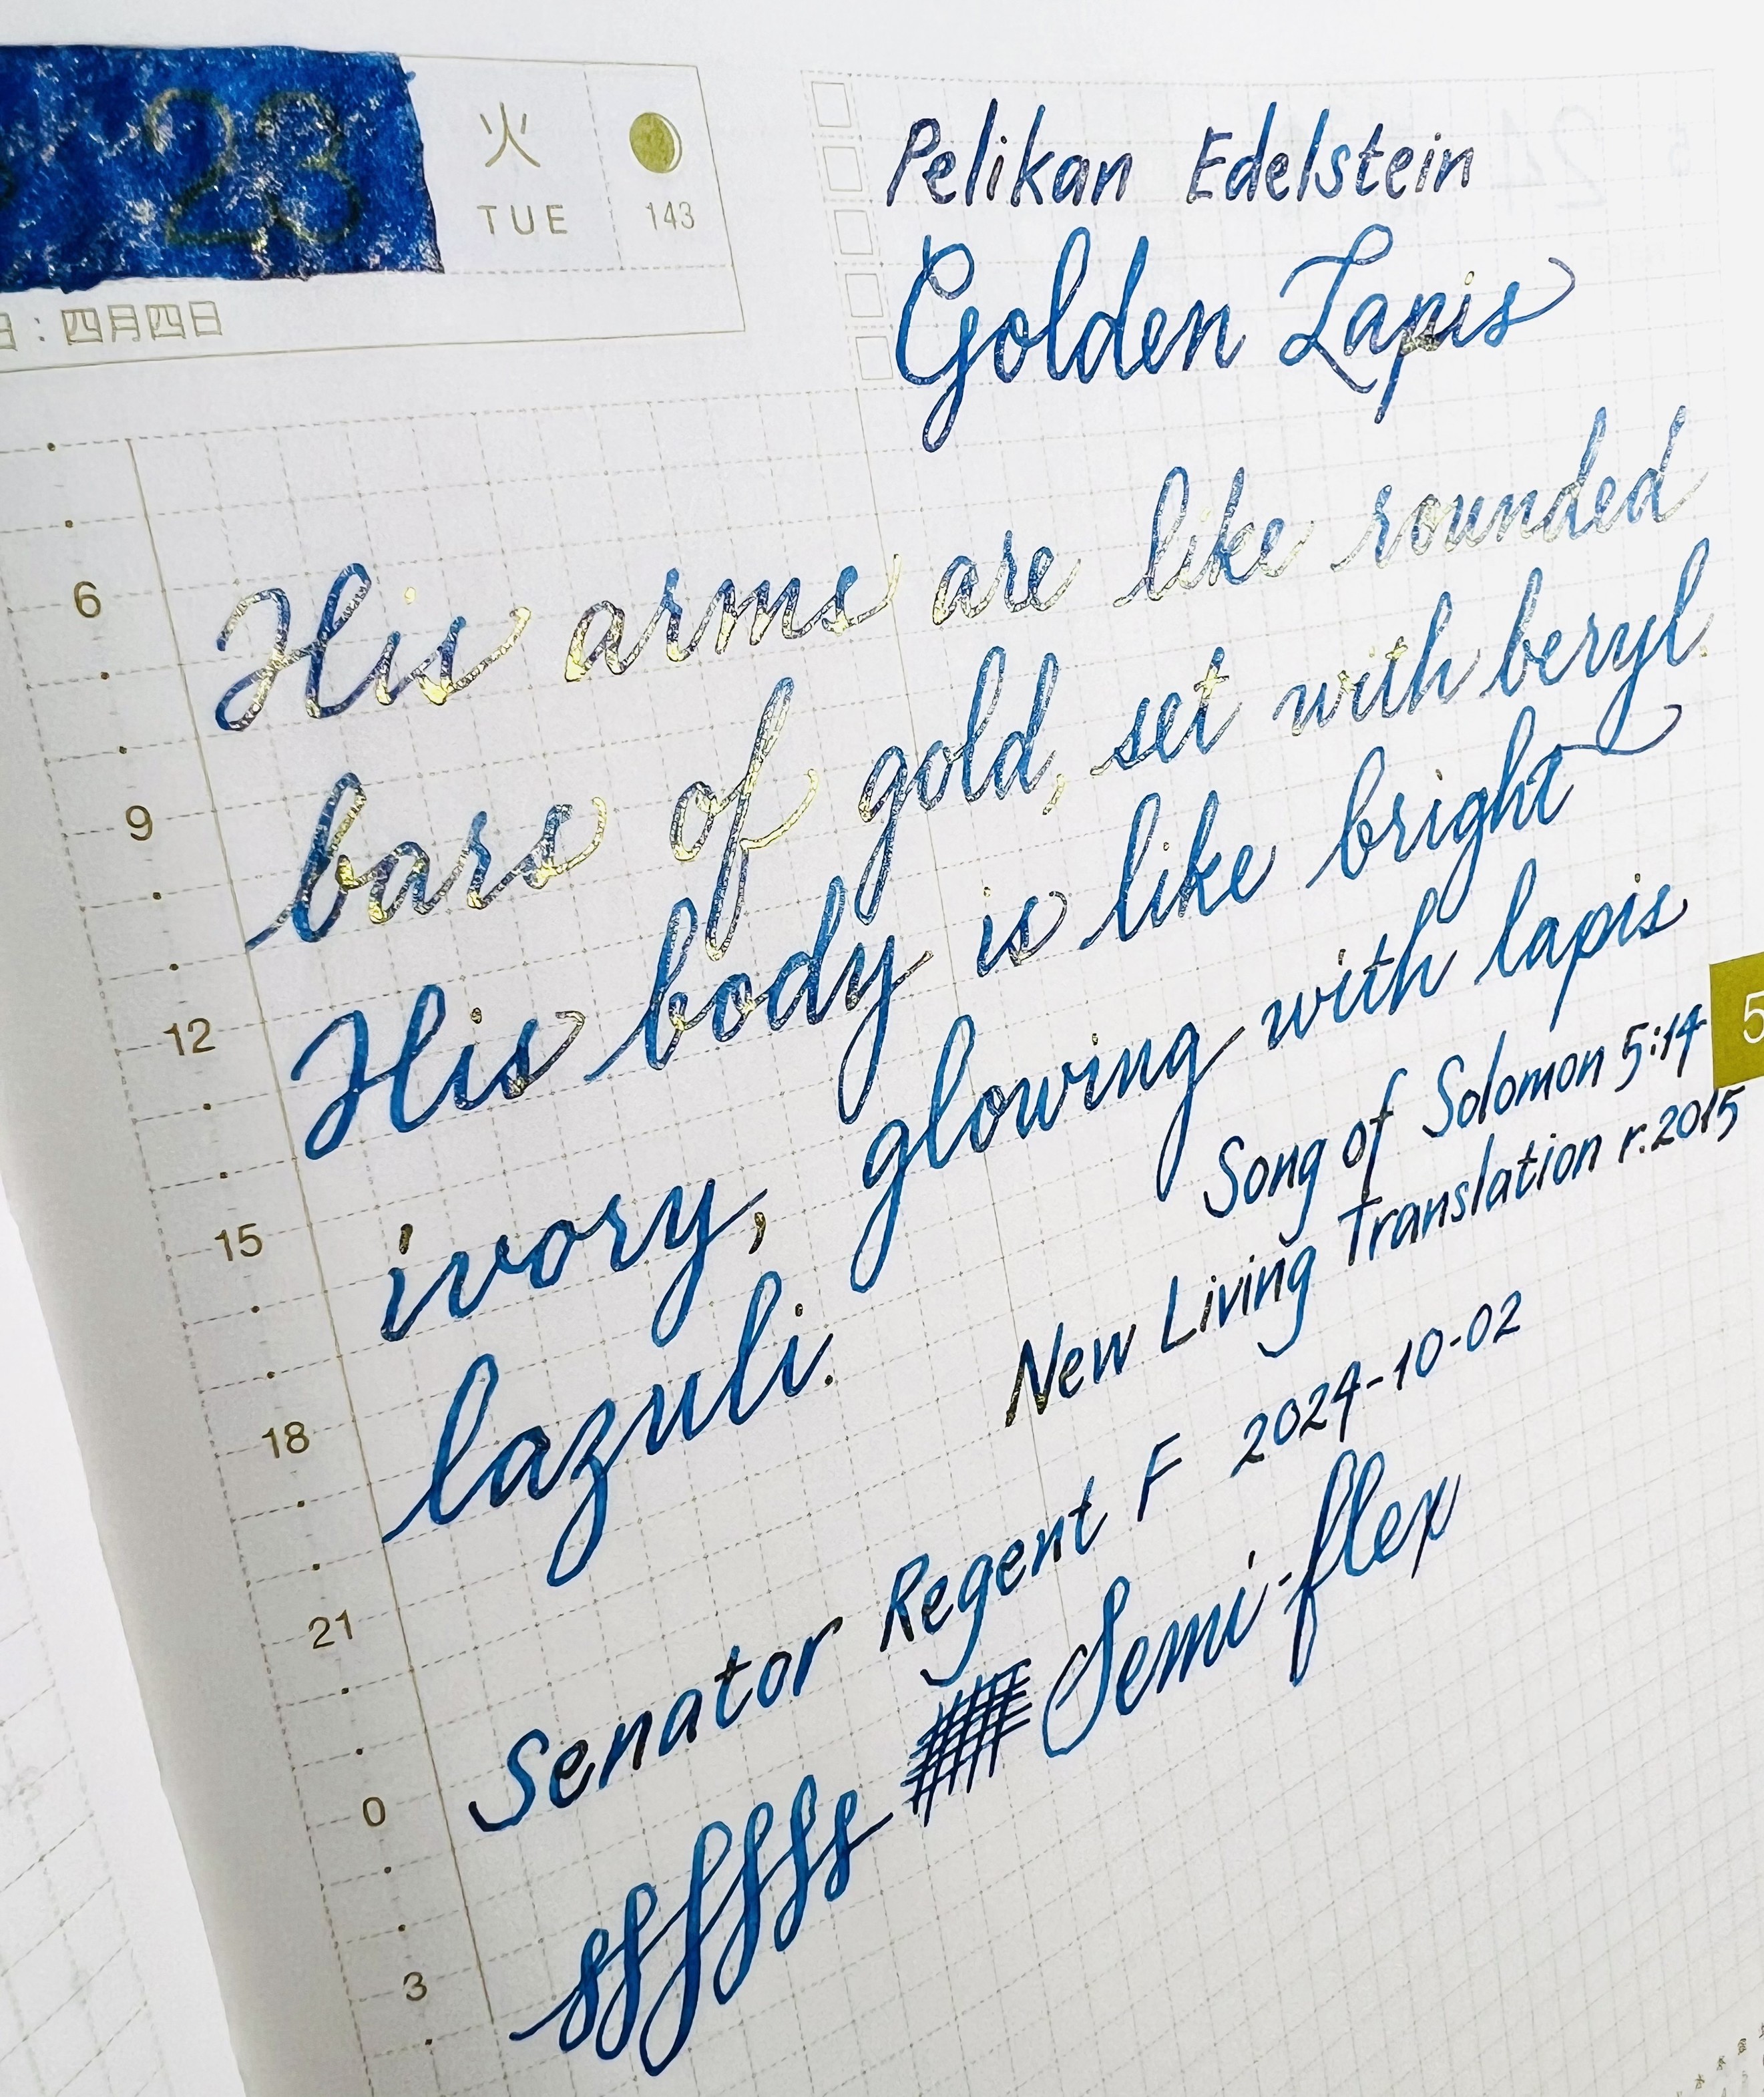 23
火
TUE
143
日:四月四日
Pelikan Edelstein
Golden Lapis
His arms are like rounded
bars of gold, set with beryl.
His body is like bright
ivory, glowing with lapis
lazuli.
Song of Solomon 5:14
New Living Translation r.2015
Senator Regent F 2024-10-02
Semi-flex
6
9
12
15
18
21
0
3
5